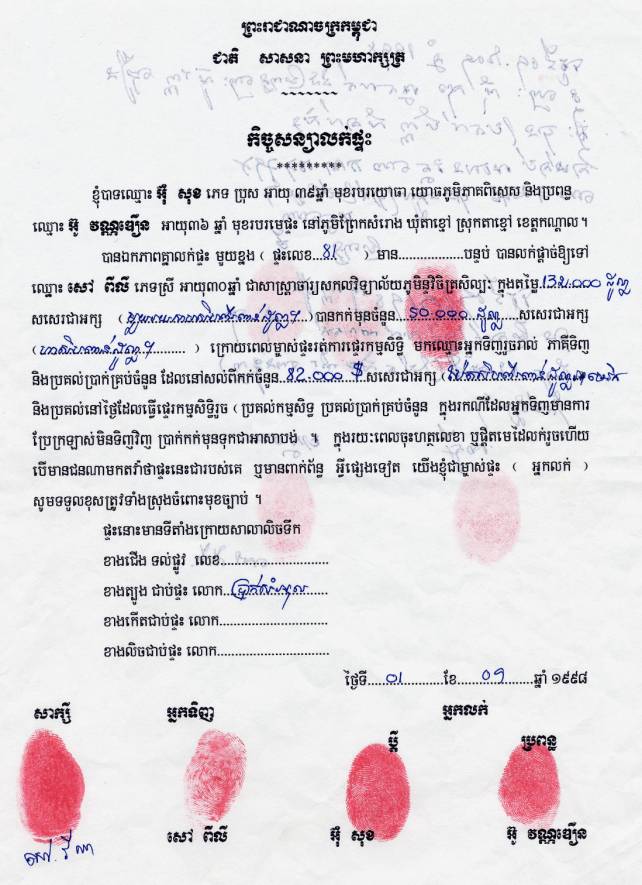 ព្រះរាជាណាចក្រកម្ពុជា
ជាតិ សាសនា ព្រះមហាក្សត្រ
-------
កិច្ចសន្យាលក់ផ្ទះ
*********
ខ្ញុំបាទឈ្មោះ អ៊ឺ សុខ ភេទ ប្រុស អាយុ ៣៩ឆ្នាំ មុខរបរយោធា យោធភូមិភាគពិសេស និងប្រពន្ធ
ឈ្មោះ អ៊ូ វណ្ណឌឿន អាយុ៣៦ ឆ្នាំ មុខរបរមេផ្ទះ នៅភូមិព្រែកសំរោង ឃុំតាខ្មៅ ស្រុកតាខ្មៅ ខេត្តកណ្តាល។
បានឯកភាពគ្នាលក់ផ្ទះ មួយខ្នង ( ផ្ទះលេខ...81 ) មាន..................បន្ទប់ បានលក់ផ្តាច់ឱ្យទៅ
ឈ្មោះ សៅ ពីលី ភេទស្រី អាយុ៣០ឆ្នាំ ជាសាស្ត្រាចារ្យសកលវិទ្យាល័យភូមិន្ទវិចិត្រសិល្បៈ ក្នុងតម្លៃ 132.000 ដុល្លា
សសេរជាអក្ស ( ) បានកក់មុនចំនួន...50.000 ដុល្លា.....សសេរជាអក្ស
( ............ ) ក្រោយពេលម្ចាស់ផ្ទះរត់ការផ្ទេរកម្មសិទ្ធិ មកឈ្មោះអ្នកទិញរួចរាល់ ភាគីទិញ
និងប្រគល់ប្រាក់គ្រប់ចំនួន ដែលនៅសល់ពីកក់ចំនួន...82.000...$ សសេរជាអក្ស (
និងប្រគល់នៅថ្ងៃដែលធ្វើផ្ទេរកម្មសិទ្ធិរួច (ប្រគល់កម្មសិទ្ធ ប្រគល់ប្រាក់គ្រប់ចំនួន ក្នុងករណីដែលអ្នកទិញមានការ
ប្រែក្រឡាស់មិនទិញវិញ ប្រាក់កក់មុនទុកជាអាសាបង់ ។ ក្នុងរយៈពេលចុះហត្ថលេខា ឬផ្តិតមេដៃលក់រួចហើយ
បើមានជនណាមកតវ៉ាថាផ្ទះនេះជារបស់គេ ឬមានពាក់ព័ន្ធ អ្វីផ្សេងទៀត យើងខ្ញុំជាម្ចាស់ផ្ទះ ( អ្នកលក់ )
សូមទទួលខុសត្រូវទាំងស្រុងចំពោះមុខច្បាប់ ។
ផ្ទះនោះមានទីតាំងក្រោយសាលាលិចទឹក
ខាងជើង ទល់ផ្លូវ លេខ............................
ខាងត្បូង ជាប់ផ្ទះ លោក............................
ខាងកើតជាប់ផ្ទះ លោក............................
ខាងលិចជាប់ផ្ទះ លោក............................
ថ្ងៃទី.....01..........ខែ.......09........ឆ្នាំ ១៩៩៨
សាក្សី អ្នកទិញ អ្នកលក់
ប្តី ប្រពន្ធ
សៅ ពីលី អ៊ឺ សុខ អ៊ូ វណ្ណឌឿន